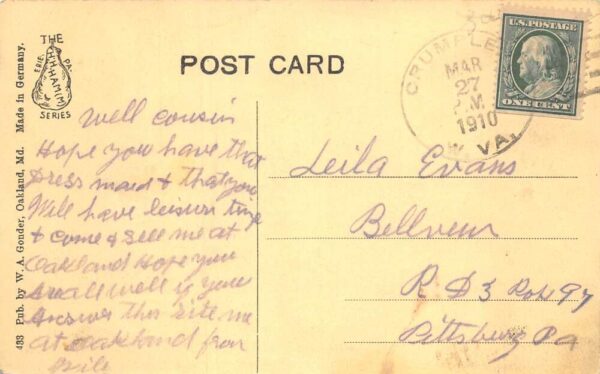 THE
HHHAMIM
ERIE, PA.
SERIES
POST CARD
433 Pub. by W. A. Gonder, Oakland, Md. Made in Germany.
U.S. POSTAGE
ONE CENT
MAR
27
M
1910
VA.
Well cousin
Hope you have that
Dress maid & that you
Will have leisure time
& come & see me at
Oakland Hope you
are all well if you
Answer this
at Oakland from
Leila Evans
Bellveur
R D 3 Box 97
Pittsburg Pa